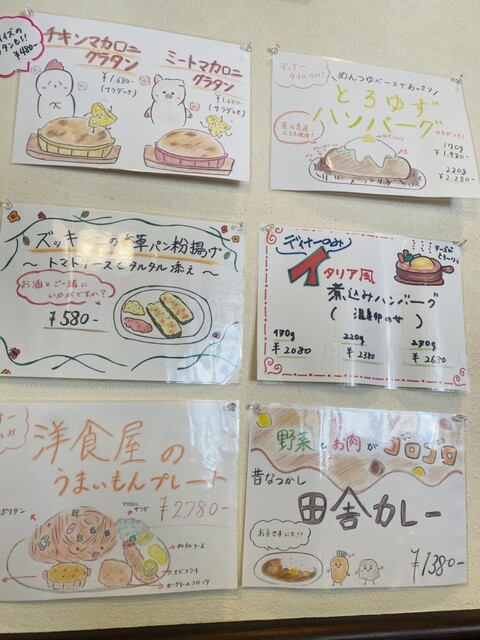 イズの
タンも!!
¥480-
チキンマカロニ
グラタン
¥1,680-
(サラダつき)
ミートマカロニ
グラタン
¥1,680-
(サラダつき)
ディナー
タイムのみ!
めんつゆベースであっさり♪
とろゆず
ハンバーグ
サラダつき♪
170g
¥1.980-
220g
¥2.280-
ズッキ
草パン粉揚げ
〜トマトソースとタルタル添え〜
お酒とご一緒に
いかがですか?
¥580-
ディナーのみ
チーズが
とろ〜り
イタリア風
煮込みハンバーグ
(温泉卵のせ)
170g
¥2080
220g
¥2380
280g
¥2680
洋食屋の
うまいもんプレート
¥2,780-
ポリタン
マカロニ
サラダ
タルタルソース
エビフライ
カニクリームコロッケ
野菜とお肉がゴロゴロ
昔なつかし
田舎カレー
お子さまにも!!
¥1380-